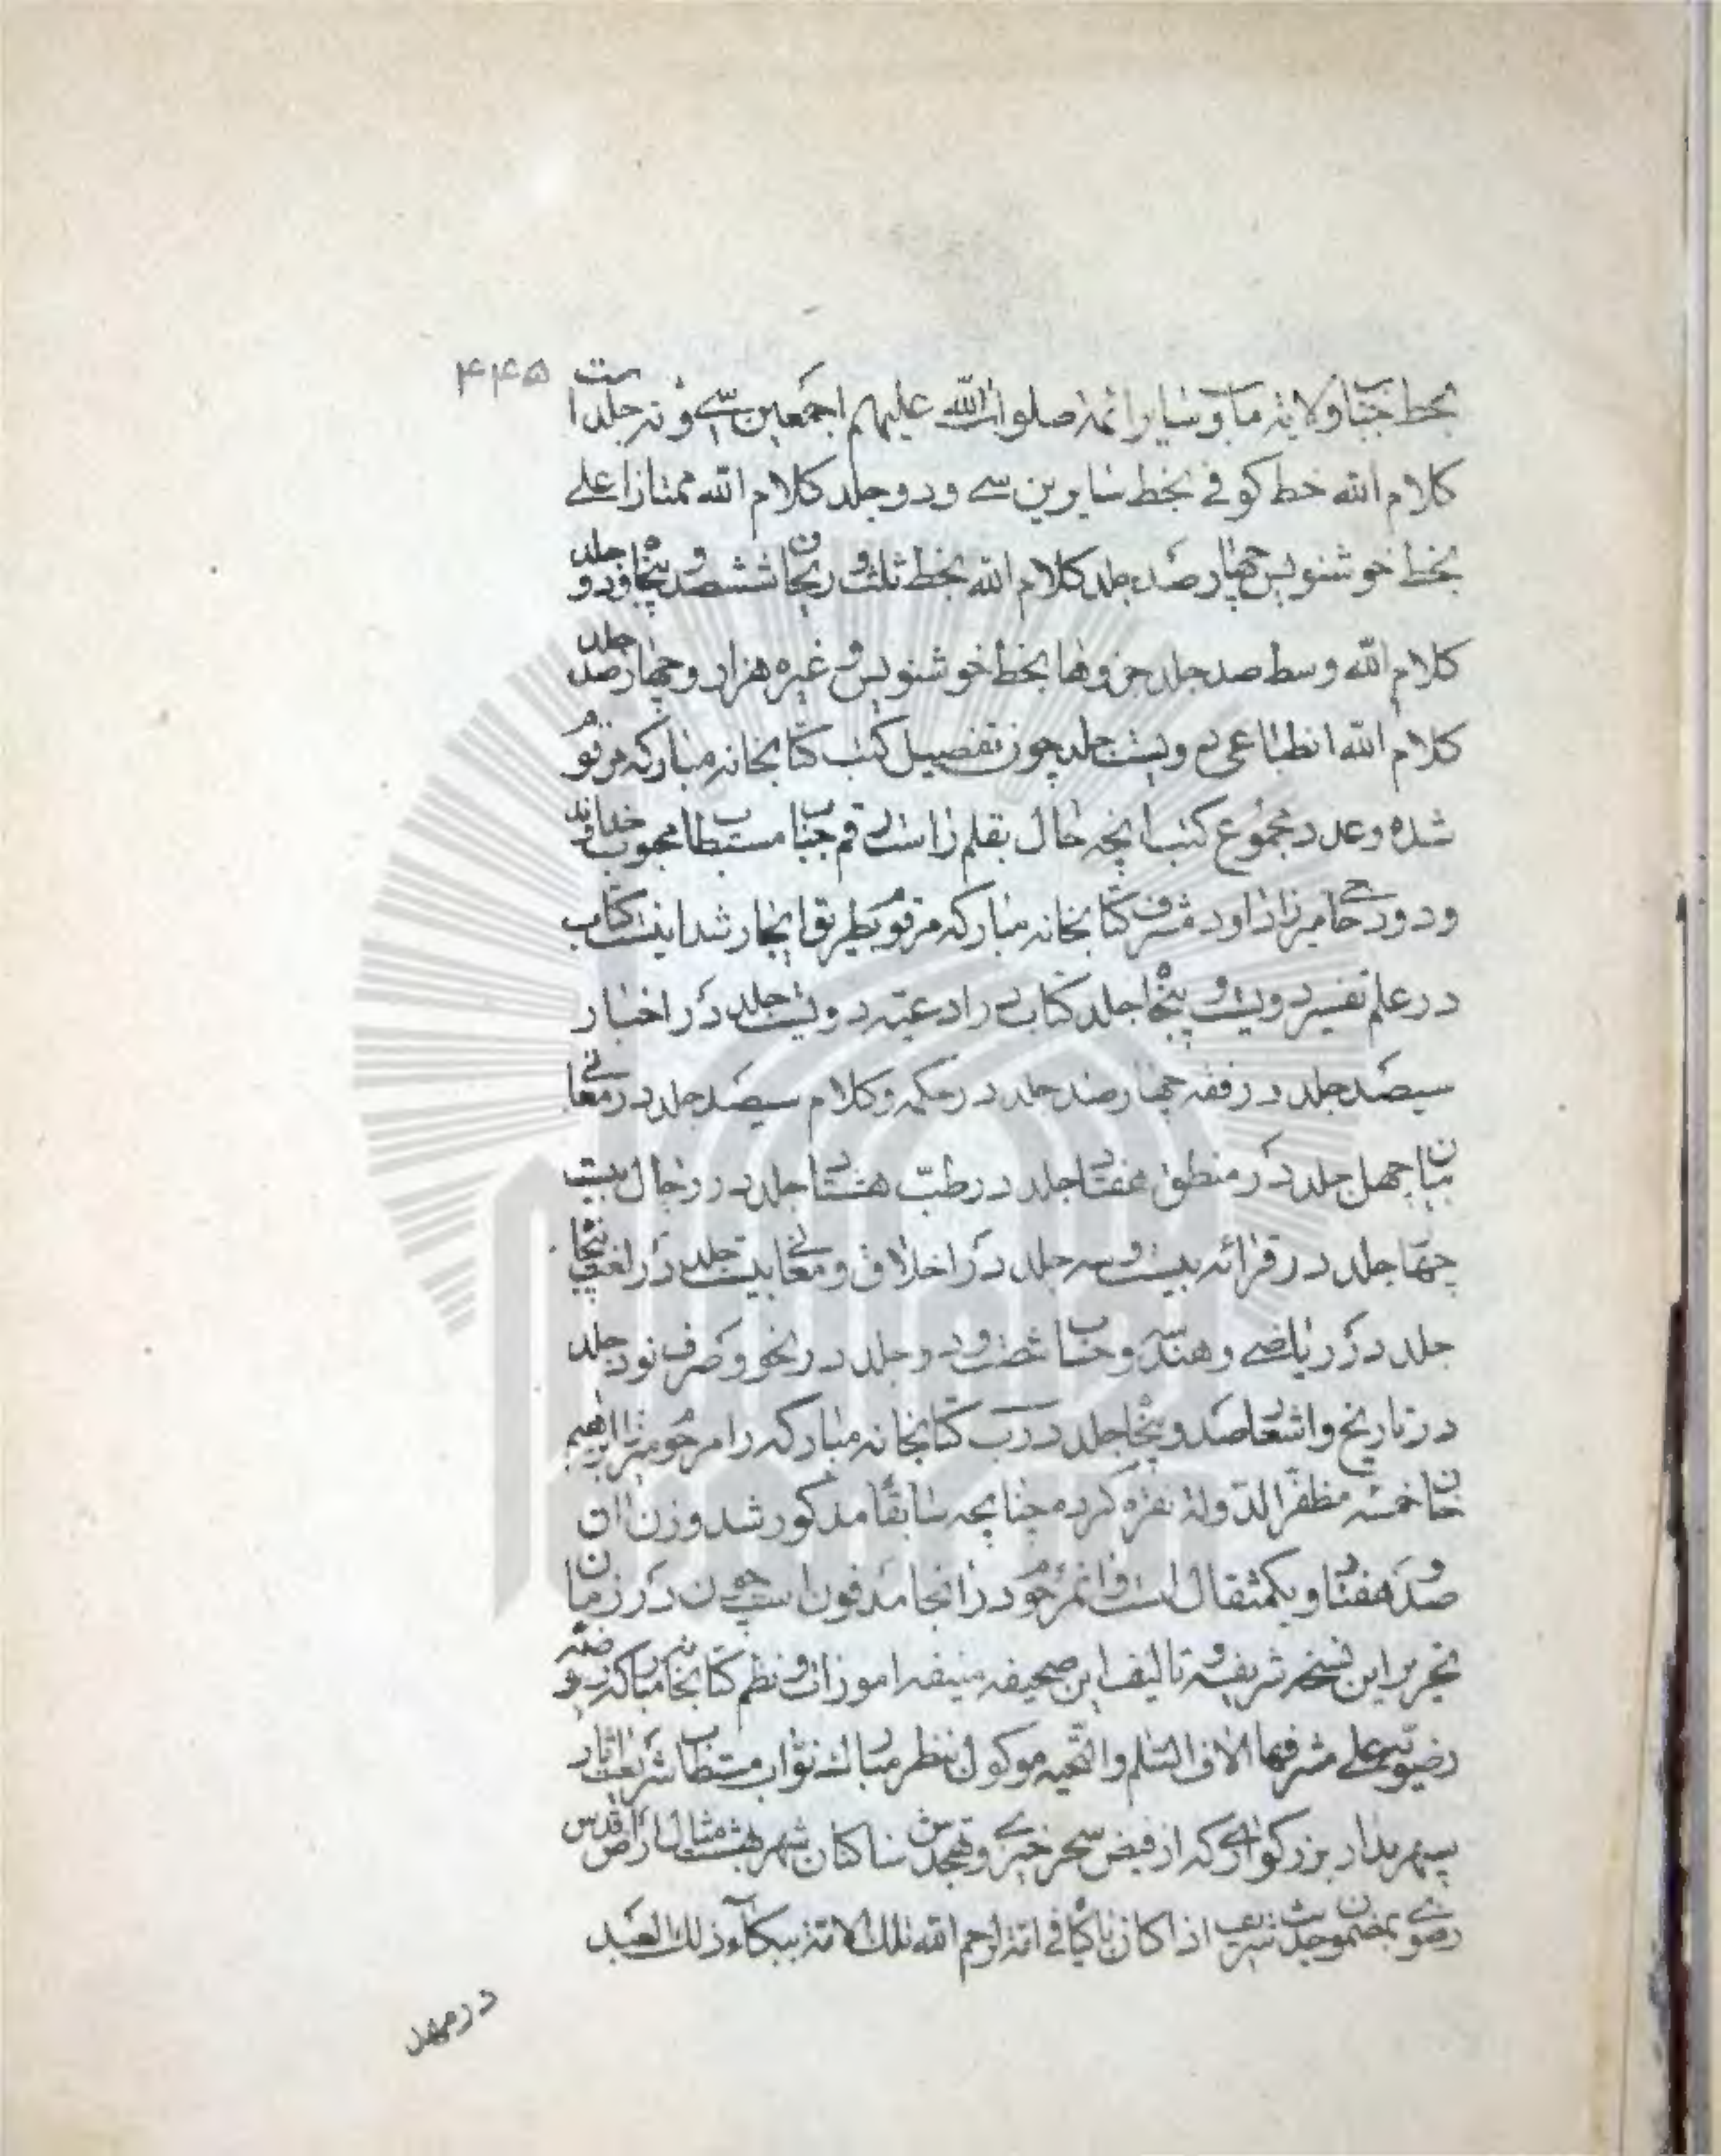 ۴۴۵
بخط جناب ولایة ماب و سایر ائمة صلوات الله علیهم اجمعین سی و نه جلد است
کلام الله خط کوفی بخط سایرین سی و دو جلد کلام الله ممتاز اعلی
بخط خوشنویس چهار صد جلد کلام الله بخط ثلث و ریحان ششصد و پنجاه و دو جلد
کلام الله وسط صد جلد جزوها بخط خوشنویس و غیره هزار و چهار صد جلد
کلام الله انطباعی دویست جلد چون تفصیل کتب کتابخانه مبارکه مرقوم
شده و عدد مجموع کتب انچه حال بقلم راست رقم جناب مستطاب محبوب خداوند
ودود حاجی میرزا داود مشرف کتابخانه مبارکه مرقوم بطریق ایجاز شد اینست کتاب
در علم تفسیر دویست و پنجاه جلد کتاب در ادعیّه دویست جلد در اخبار
سیصد جلد در فقه چهار صد جلد در حکمه و کلام سیصد جلد در معانی
بیان چهل جلد در منطق هفتاد جلد در طبّ هشتاد جلد در رجال بیست
چهار جلد در قرائه بیست و سه جلد در اخلاق و معانی بیست جلد در لغت پنجاه
جلد در ریاضی و هندسه و حساب شصت و دو جلد در نحو و صرف نود جلد
در تاریخ و اشعار صد و پنجاه جلد درب کتابخانه مبارکه را مرحوم میرزا ابراهیم
خان خمسه مظفر الدولة نقره کرده چنانچه سابقا مذکور شد وزن ان
صد و هفتاد و یکمثقال است و انمرحوم در انجا مدفون است چون در زمان
تحریر این نسخه شریفه و تالیف این صحیفه منیفه امورات و نظم کتابخانه مبارکه روضه
رضویّه علی مشرفها الاف السّلم و التّحیه موکول بنظر مبارک نوّاب مستطاب شریعت اثار
سپهر مدار بزرکواری که از فیض سحر خیزی و تهجدش ساکنان شهر بهشت مثال ارض اقدس
رضوی بمضمون حدیث شریف اذا کان باکیا فی امّة لرحم الله تلک الامّة ببکاء ذلک العبد
در مهد